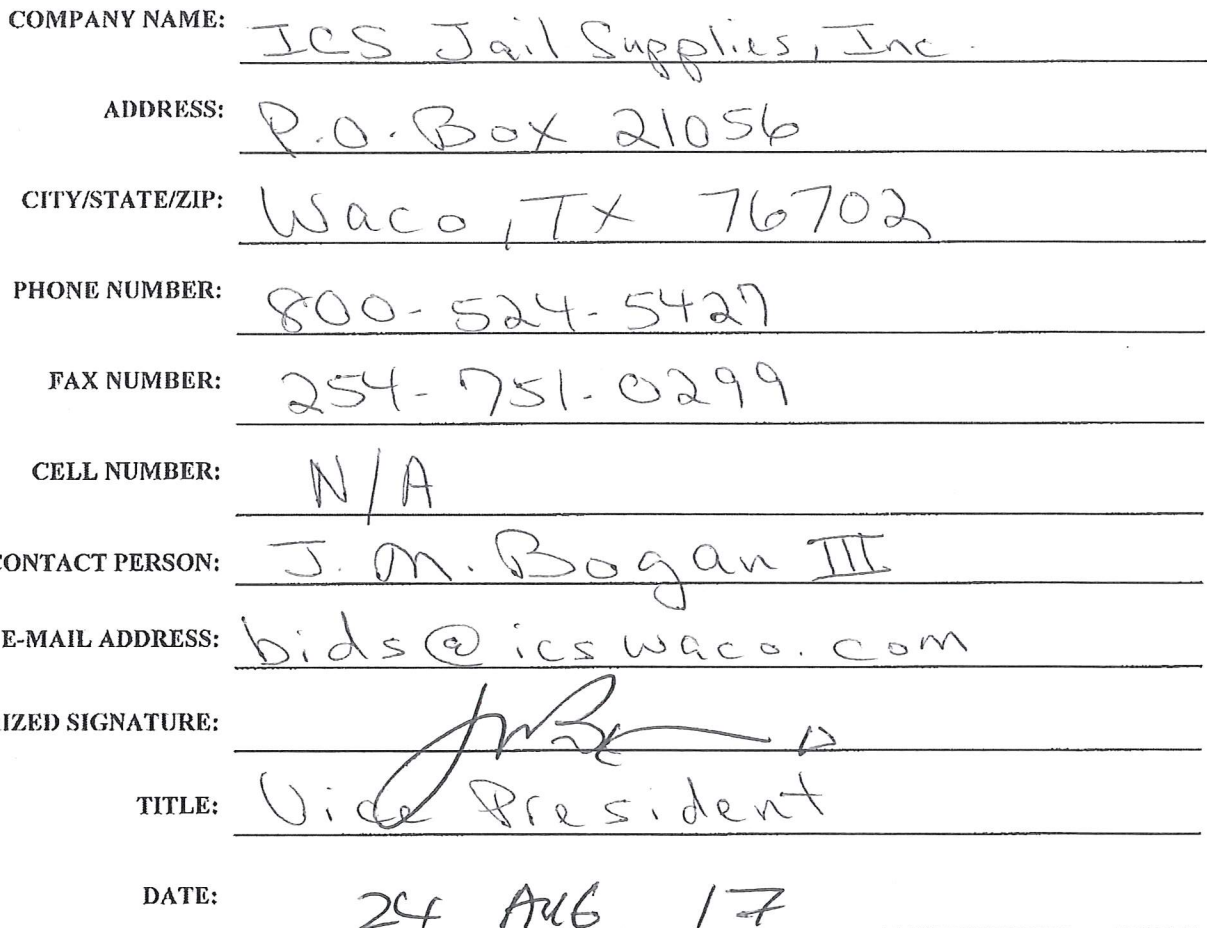 COMPANY NAME: ICS Jail Supplies, Inc.
ADDRESS: P.O. Box 21056
CITY/STATE/ZIP: Waco, TX 76702
PHONE NUMBER: 800-524-5427
FAX NUMBER: 254-751-0299
CELL NUMBER: N/A
CONTACT PERSON: J. M. Bogan III
E-MAIL ADDRESS: bids@icswaco.com
IZED SIGNATURE:
TITLE: Vice President
DATE: 24 AUG 17